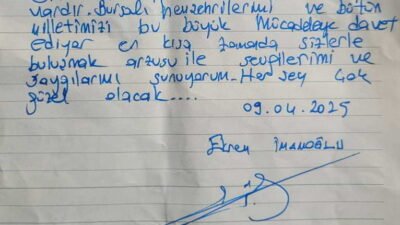 vardır. Bursalı hemşehrilerimi ve bütün
milletimizi bu büyük Mücadeleye davet
ediyor en kısa zamanda sizlerle
buluşmak arzusu ile sevgilerimi ve
saygılarımı sunuyorum. Her şey çok
güzel olacak....
09.04.2025
Ekrem İMAMOĞLU